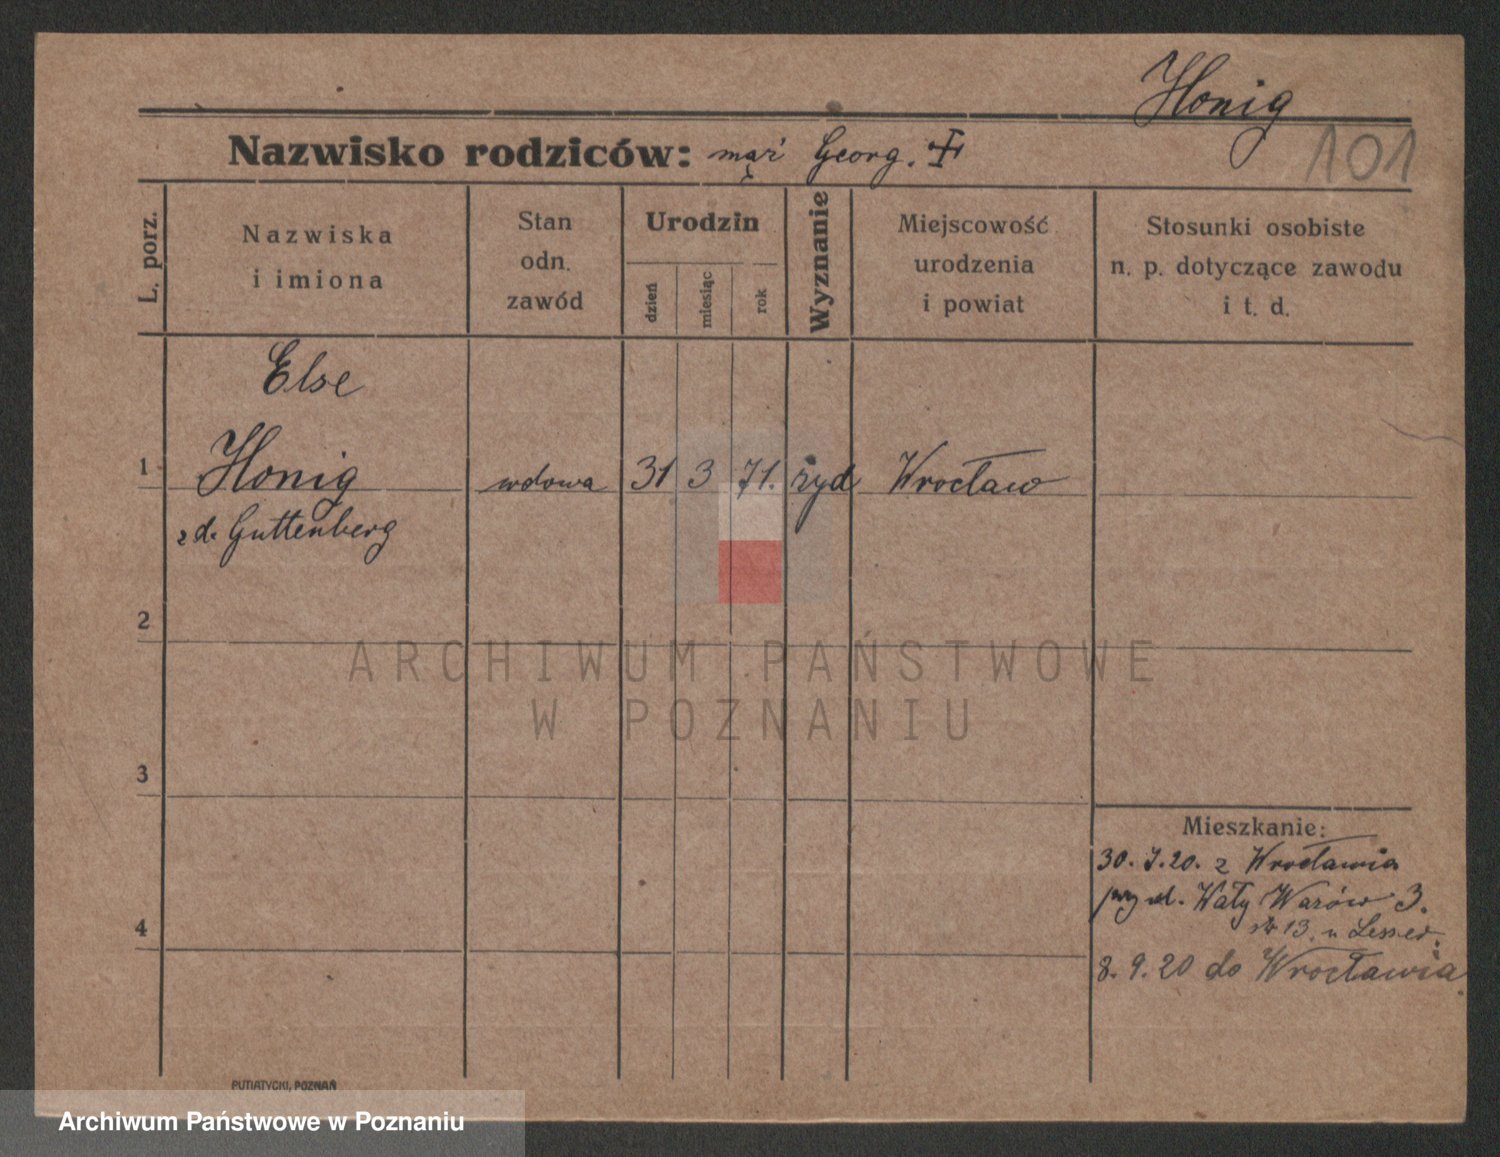 Honig
101
Nazwisko rodziców: mąż Georg. ‡
L. porz.
Nazwiska
i imiona
Stan
odn.
zawód
Urodzin
dzień
miesiąc
rok
Wyznanie
Miejscowość
urodzenia
i powiat
Stosunki osobiste
n. p. dotyczące zawodu
i t. d.
Else
1 Honig wdowa 31 3 71. żyd Wrocław
z d. Guttenberg
2
ARCHIWUM PAŃSTWOWE
W POZNANIU
3
Mieszkanie:
30. 7. 20. z Wrocławia
Wały Wazów 3.
13. u Lesser.
4
8. 9. 20 do Wrocławia.
PUTIATYCKI, POZNAŃ
Archiwum Państwowe w Poznaniu